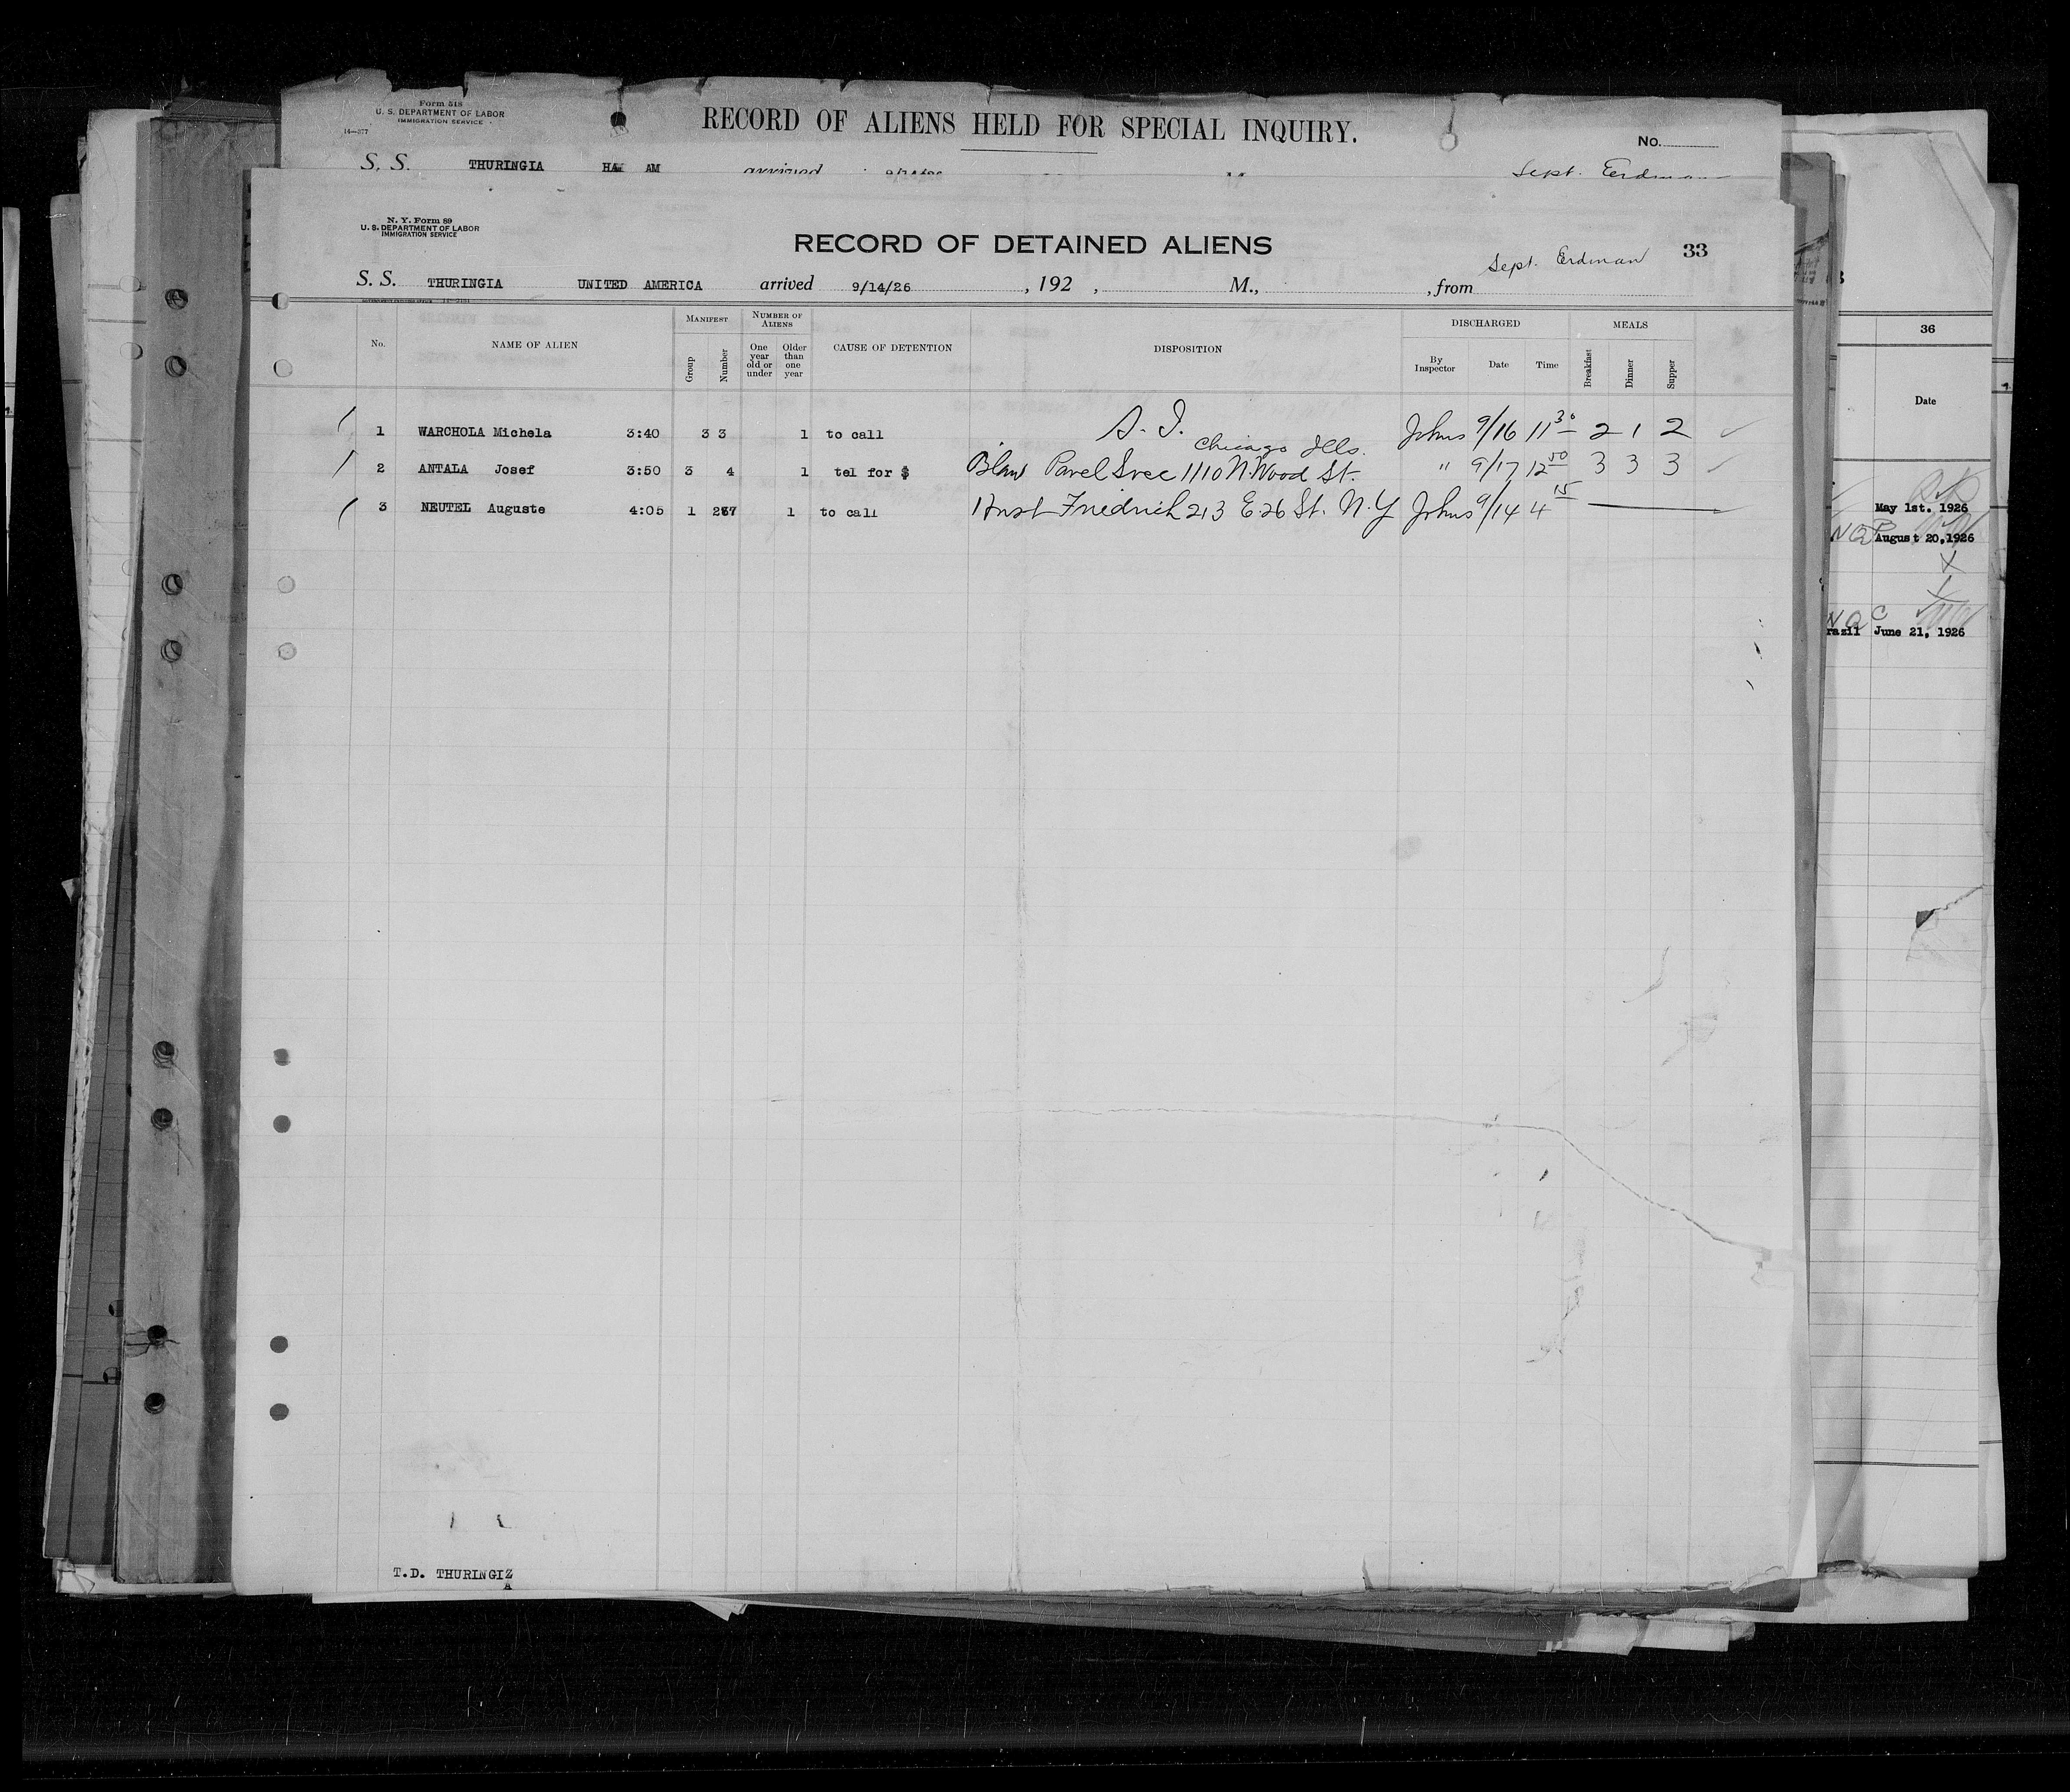 Form 518
U. S. DEPARTMENT OF LABOR
IMMIGRATION SERVICE
14—377
RECORD OF ALIENS HELD FOR SPECIAL INQUIRY.
No.
S. S. THURINGIA HAM AM arrived
Sept. Erdman
N. Y. Form 89
U. S. DEPARTMENT OF LABOR
IMMIGRATION SERVICE
RECORD OF DETAINED ALIENS
Sept. Erdman 33
S. S. THURINGIA UNITED AMERICA arrived 9/14/26, 192 , M., , from
No. NAME OF ALIEN MANIFEST NUMBER OF ALIENS CAUSE OF DETENTION DISPOSITION DISCHARGED MEALS
Group Number One year old or under Older than one year By Inspector Date Time Breakfast Dinner Supper
1 WARCHOLA Michela 3:40 3 3 1 to call S. I. Johns 9/16 11 30 2 1 2
Chicago Ills.
2 ANTALA Josef 3:50 3 4 1 tel for $ Pavel Svec 1110 N. Wood St. " 9/17 12 50 3 3 3
3 NEUTEL Auguste 4:05 1 1 to call Friedrich 213 E 26 St. N.Y Johns 9/14 4 15
T.D. THURINGIZ
A
36
Date
May 1st. 1926
August 20,1926
razil June 21, 1926